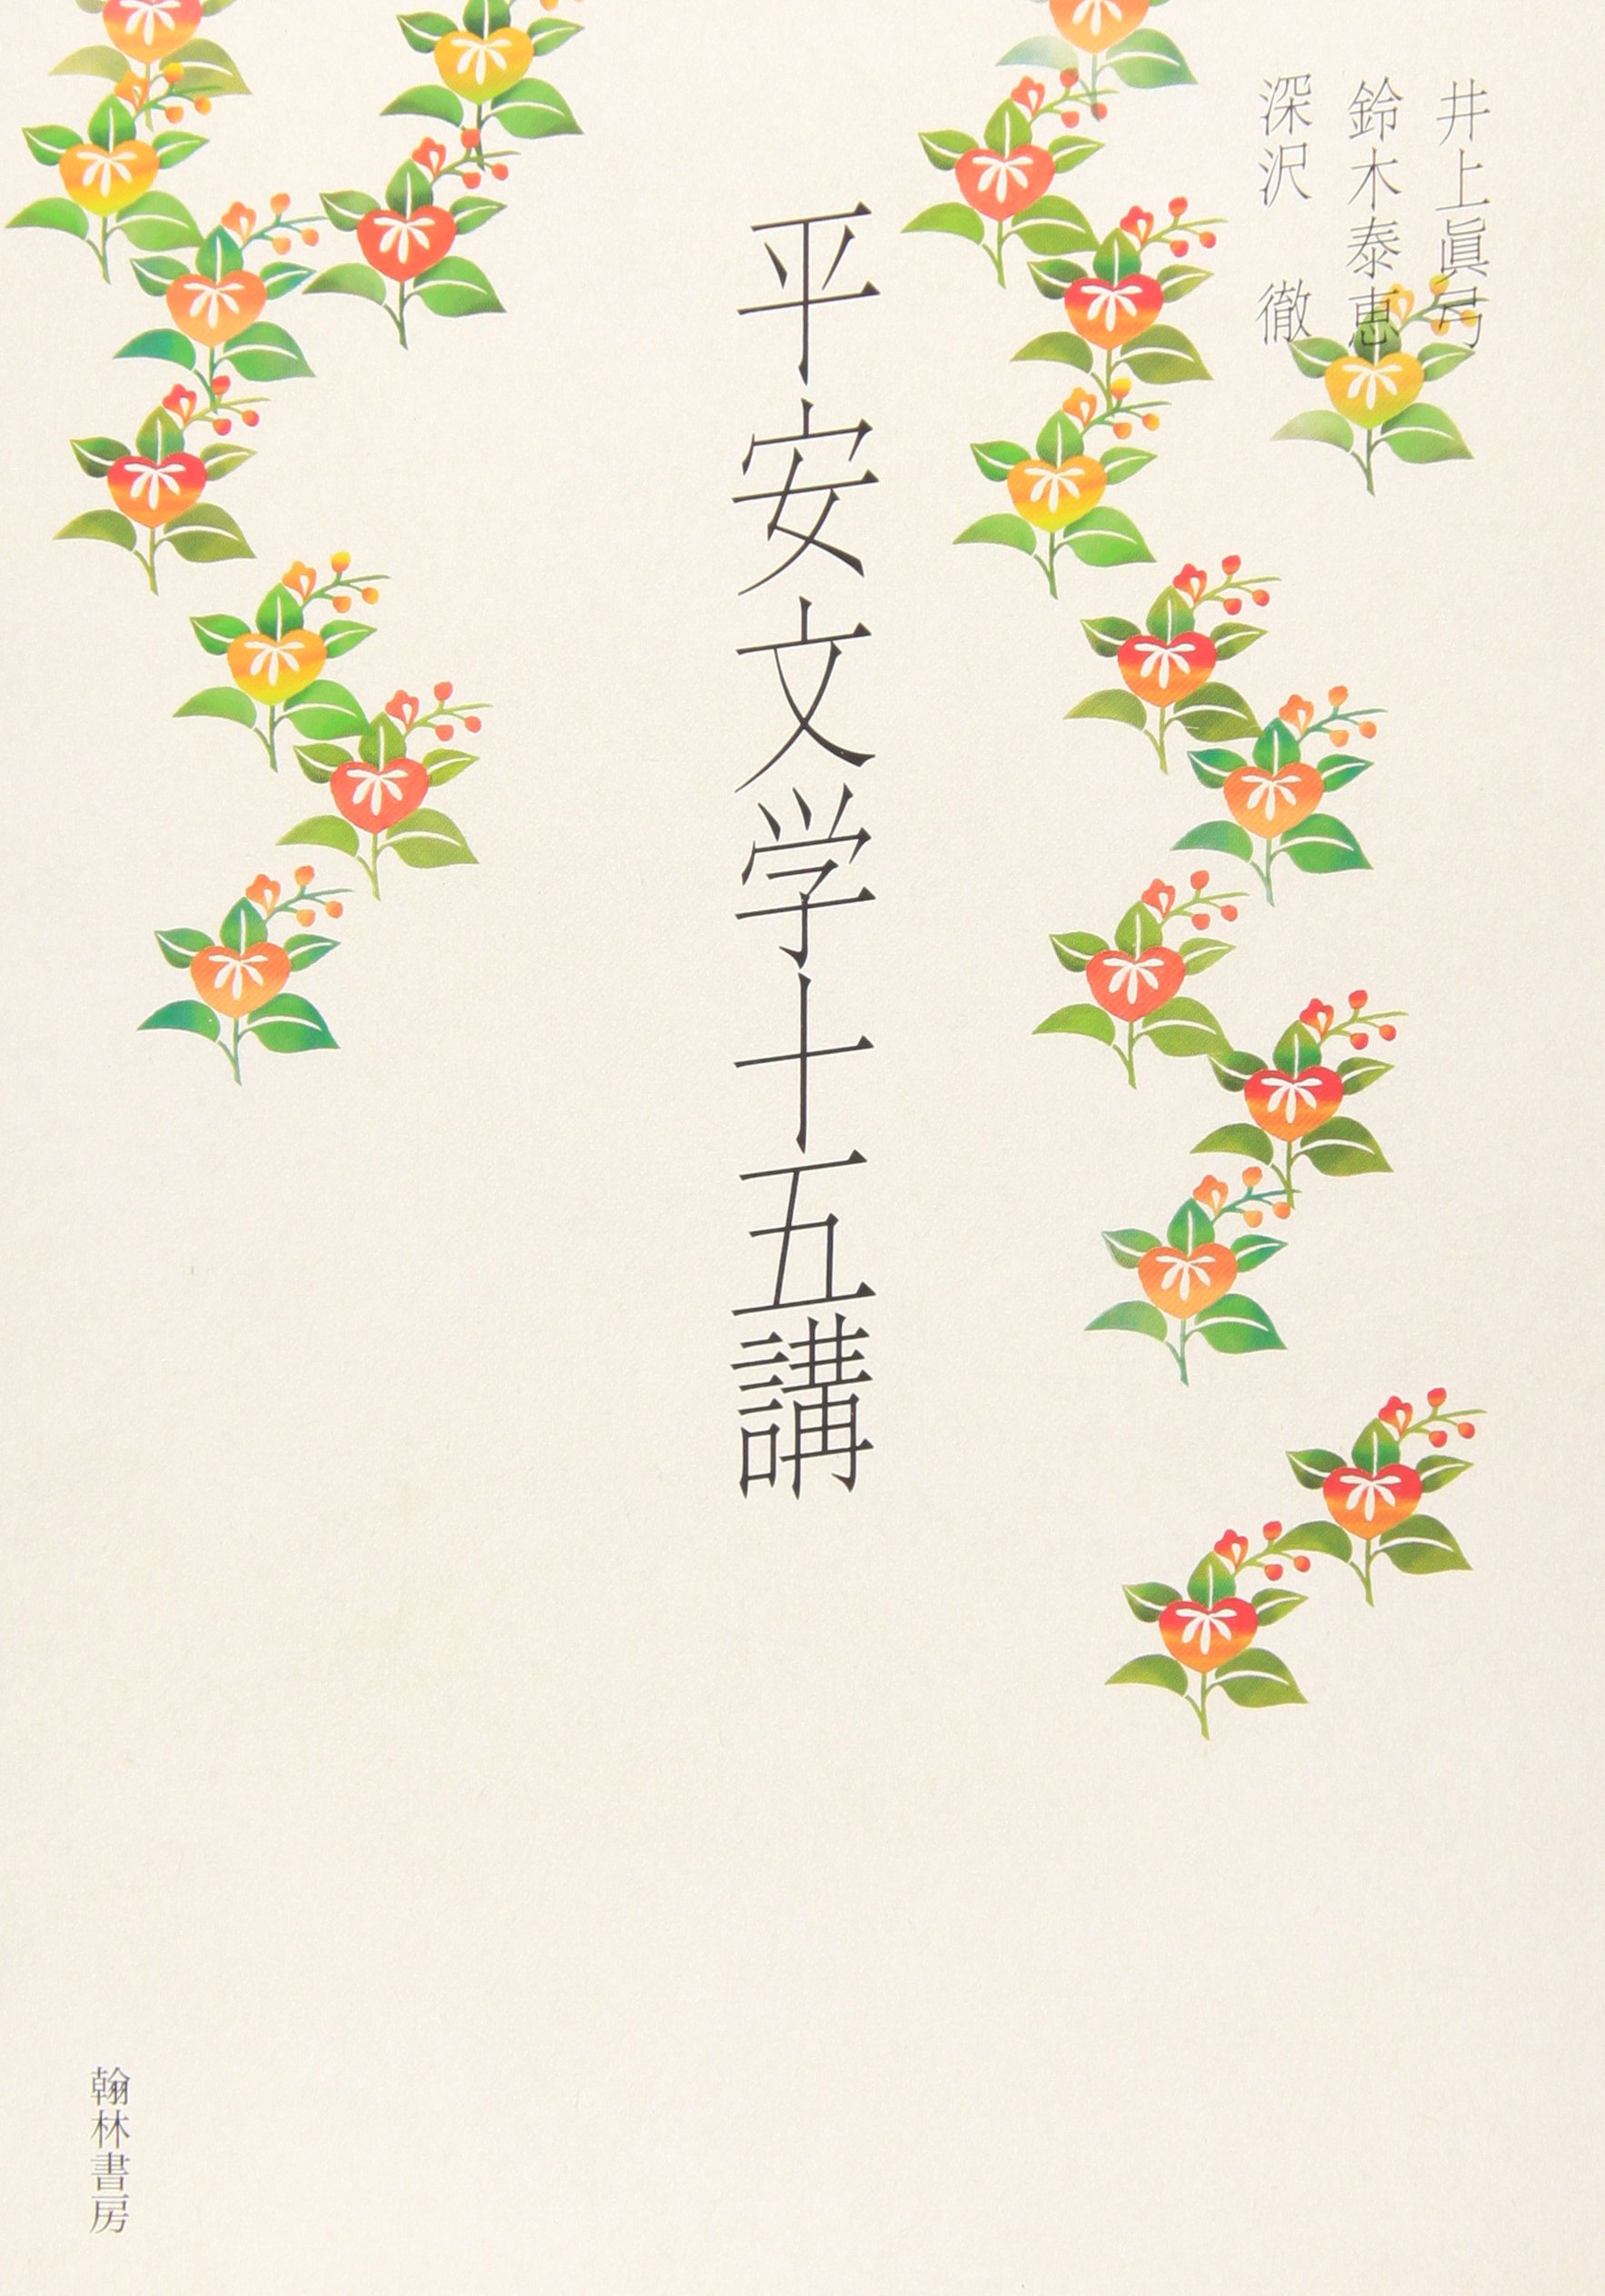 井上眞弓
鈴木泰恵
深沢　徹
平安文学十五講
翰林書房